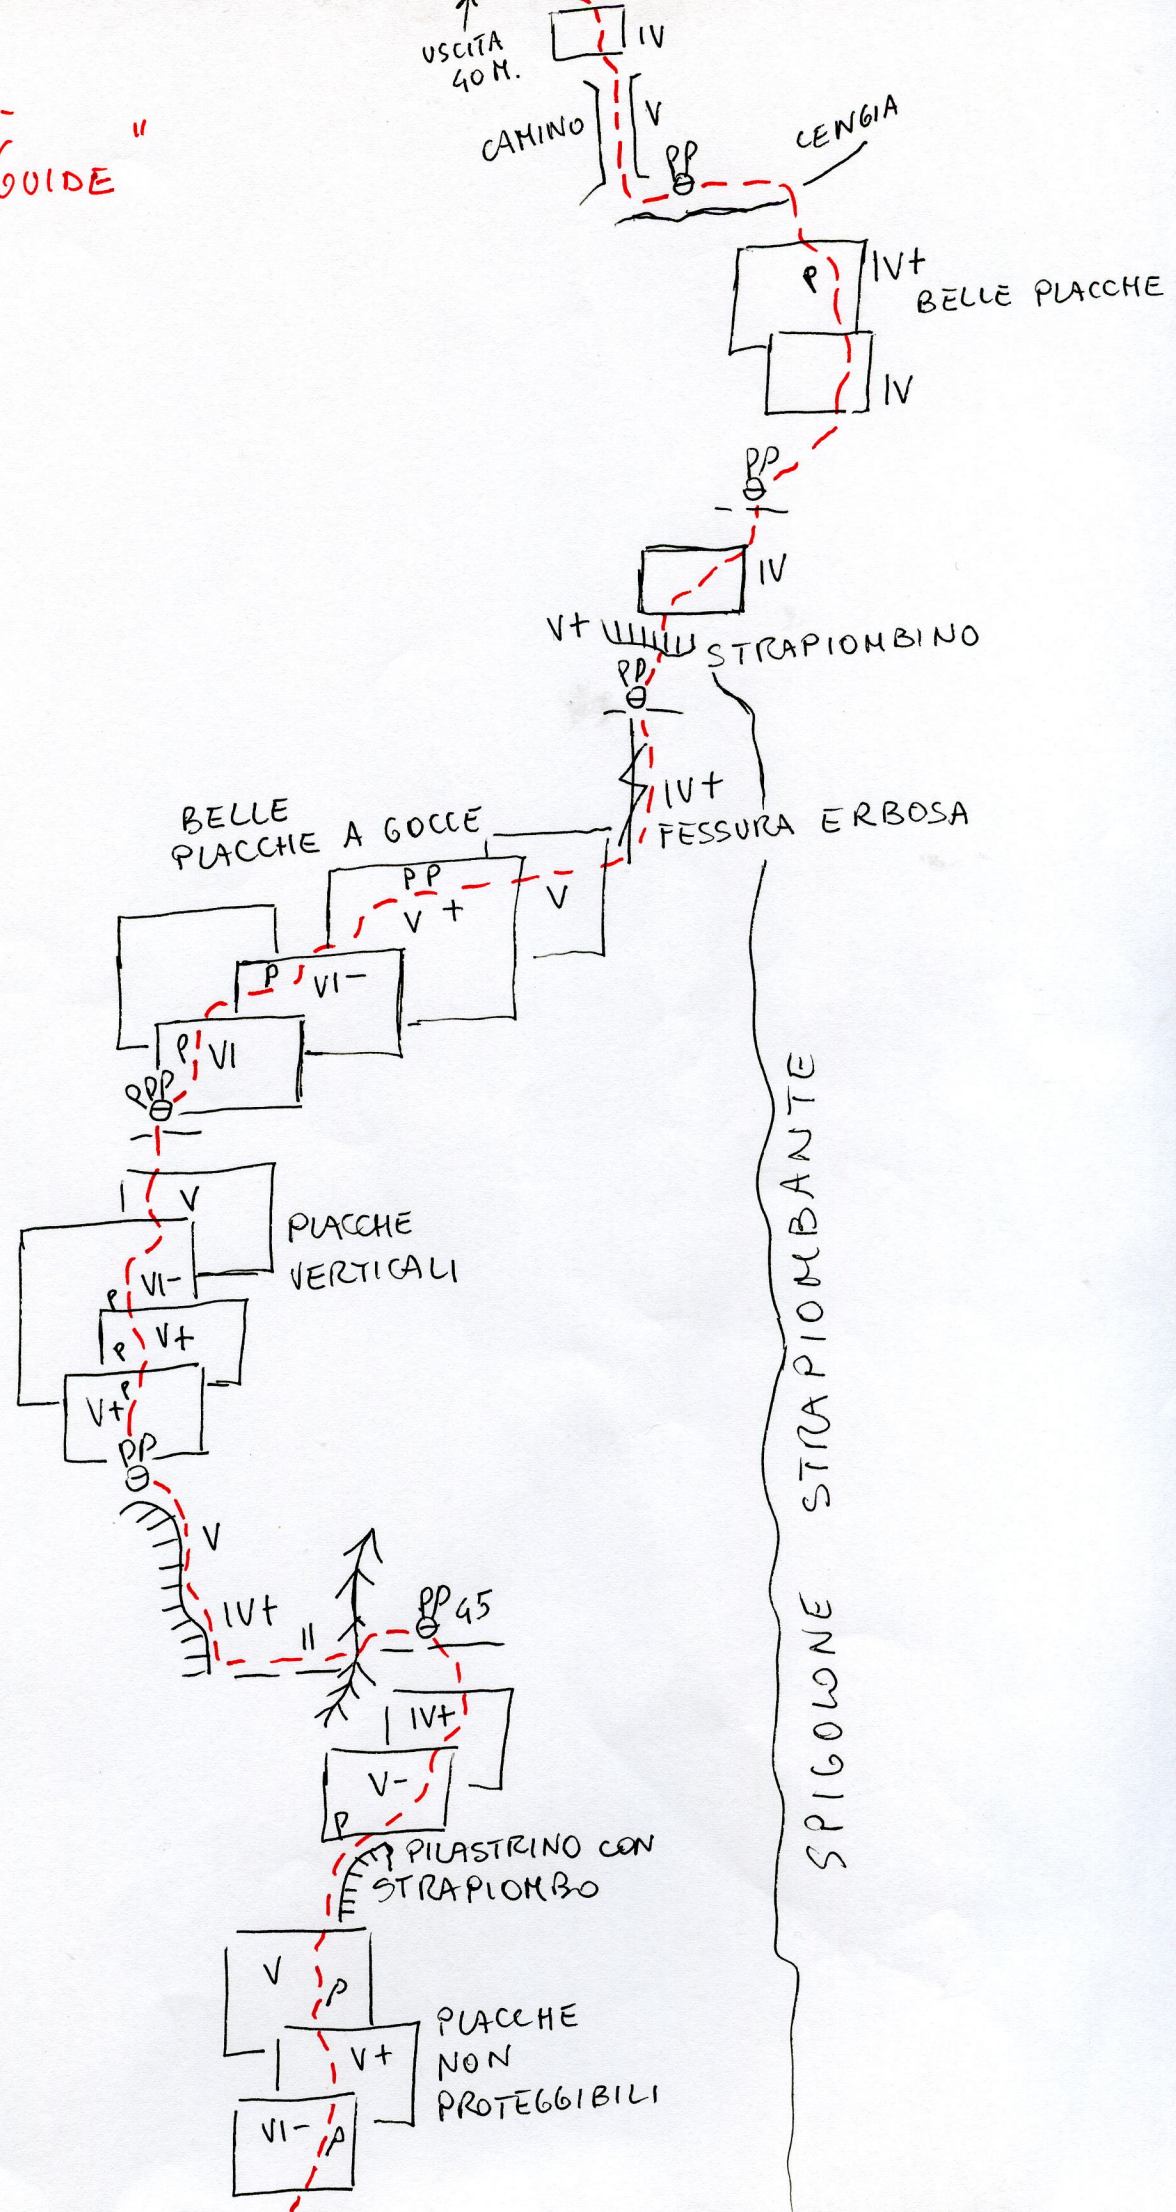 USCITA
40 M.
IV
"
GUIDE
CAMINO
V
PP
CENGIA
P
IV+
BELLE PLACCHE
IV
PP
IV
V+
STRAPIOMBINO
PP
IV+
FESSURA ERBOSA
BELLE
PLACCHE A GOCCE
PP
V+
V
P
VI-
P
VI
PPP
V
PLACCHE
VERTICALI
VI-
P
P
V+
P
V+
PP
V
IV+
II
PP 45
IV+
V-
P
PILASTRINO CON
STRAPIOMBO
V
P
PLACCHE
NON
PROTEGGIBILI
V+
VI-
P
SPIGOLONE STRAPIOMBANTE